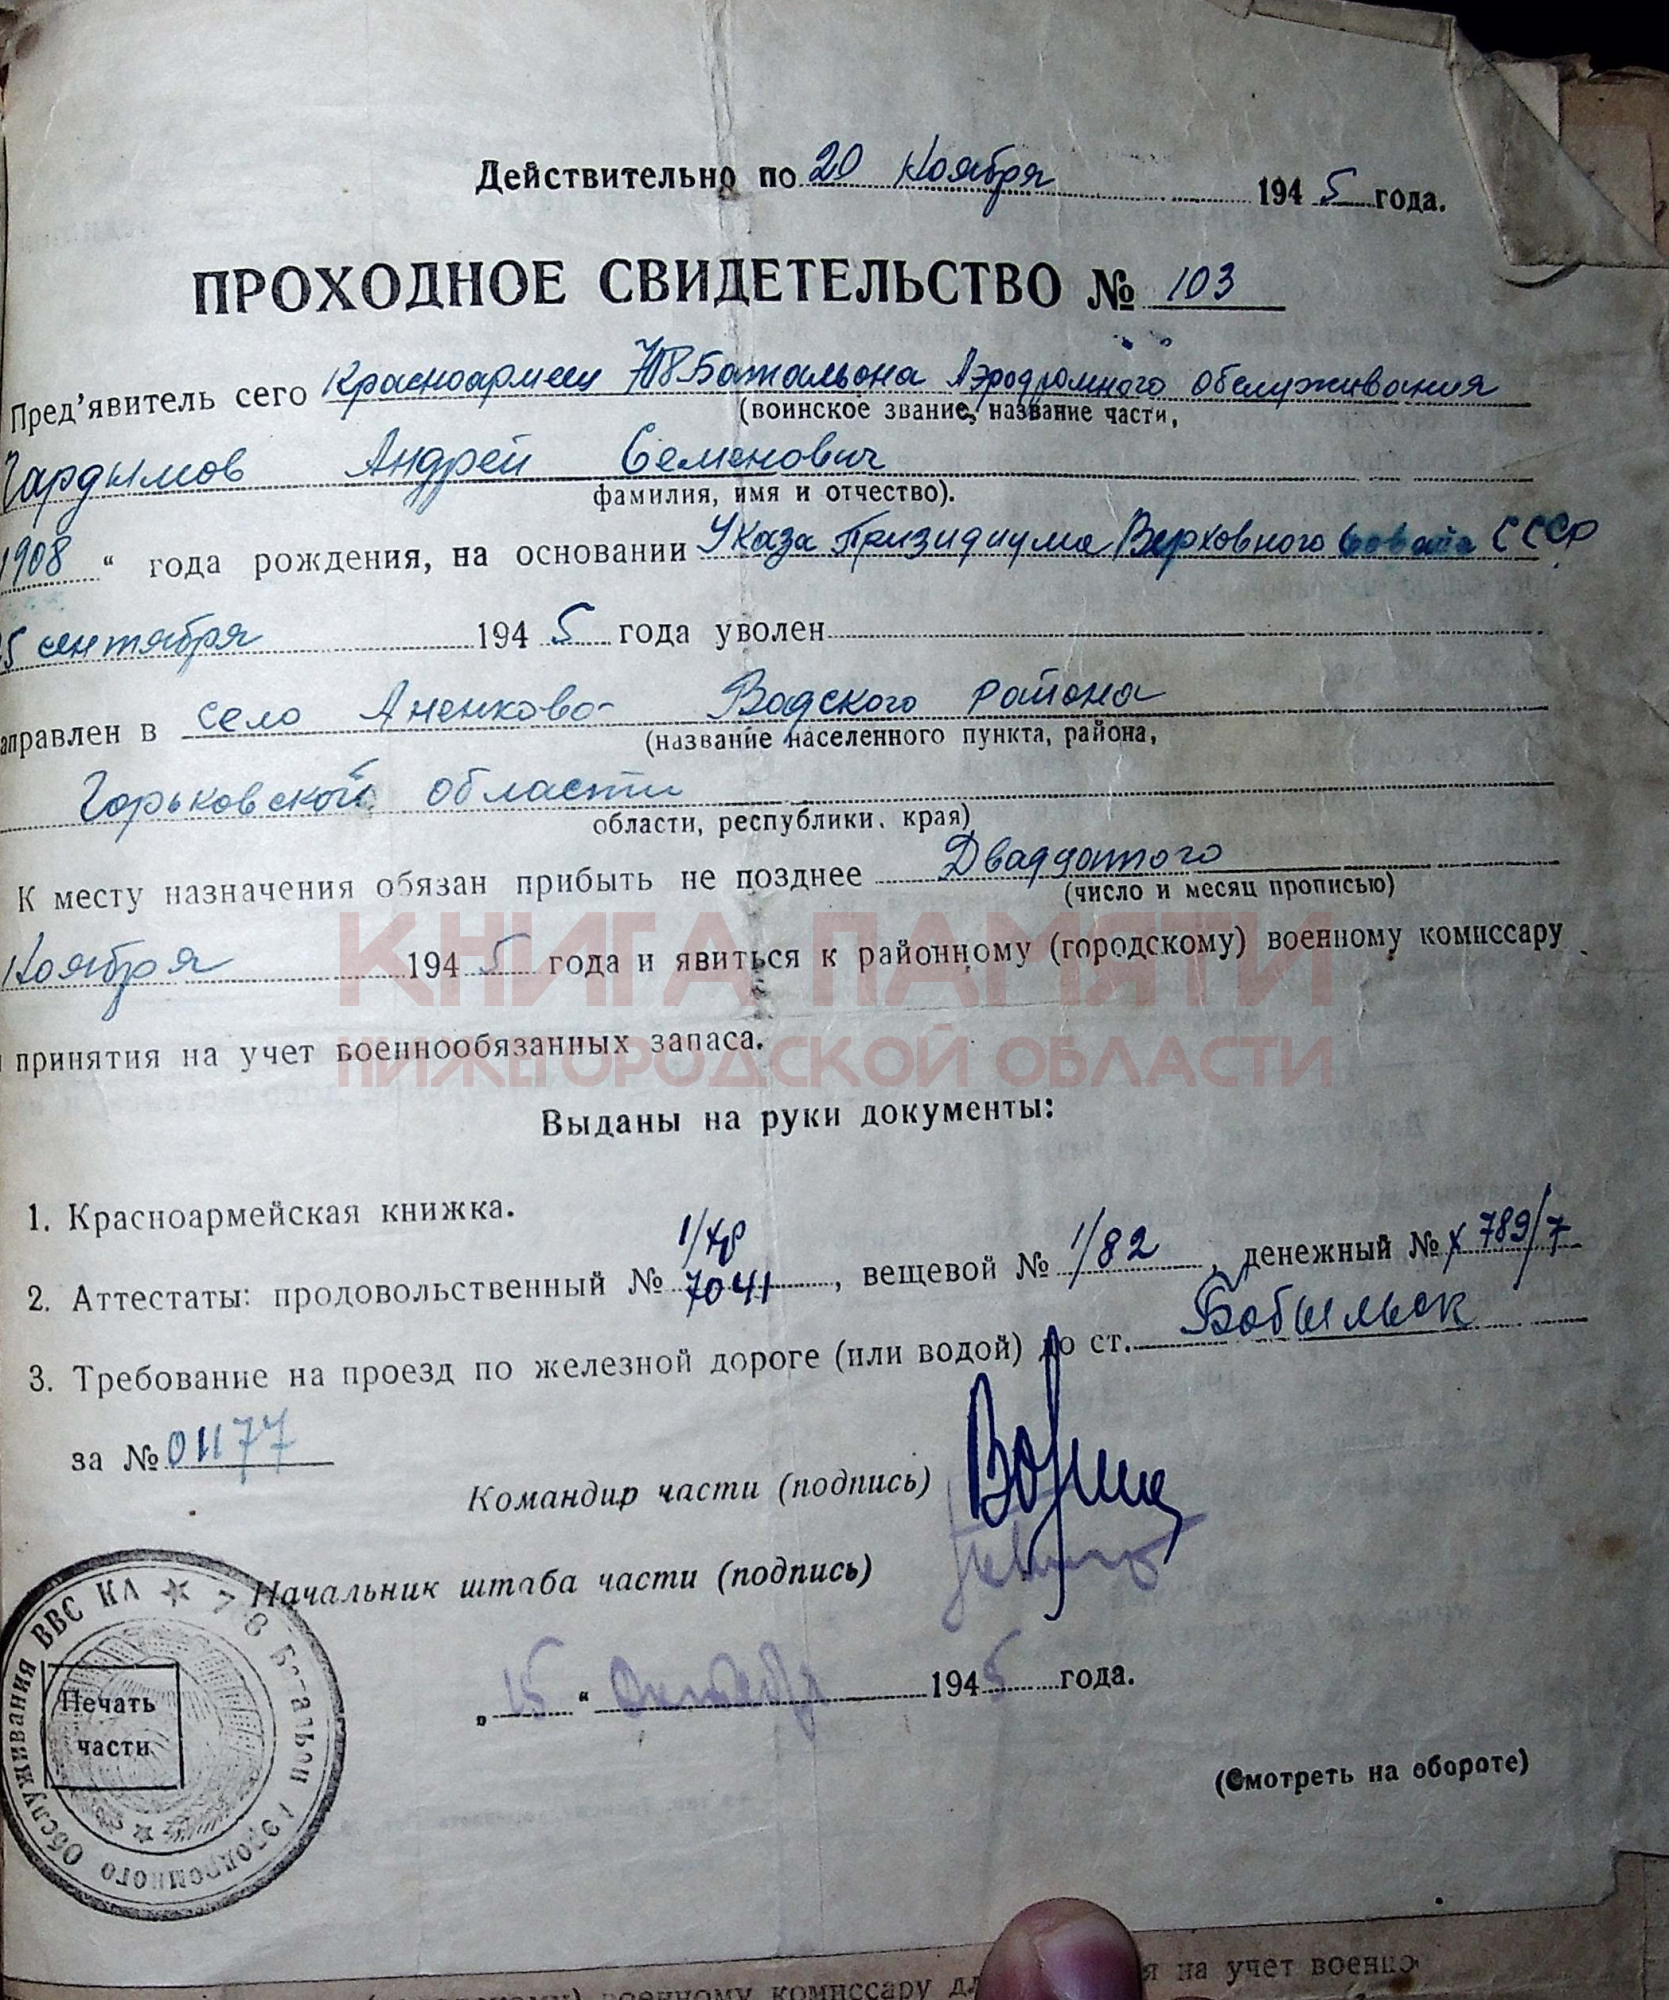 Действительно по 20 Ноября 1945 года.
ПРОХОДНОЕ СВИДЕТЕЛЬСТВО № 103
Пред'явитель сего Красноармеец Батальона Аэродромного обслуживания
(воинское звание, название части,
Гордымов Андрей Семенович
фамилия, имя и отчество).
1908 “ года рождения, на основании Указа Призидиума Верховного Совета СССР
5 сентября 1945 года уволен
аправлен в село Аненково- Вадского района
(название населенного пункта, района,
Горьковской области
области, республики, края)
К месту назначения обязан прибыть не позднее Двадцатого
(число и месяц прописью)
Ноября 1945 года и явиться к районному (городскому) военному комиссару
принятия на учет военнообязанных запаса.
КНИГА ПАМЯТИ
НИЖЕГОРОДСКОЙ ОБЛАСТИ
Выданы на руки документы:
1. Красноармейская книжка.
2. Аттестаты: продовольственный № 7041, вещевой № 1/82, денежный № х 789/7
3. Требование на проезд по железной дороге (или водой) до ст. Бобыльск
за № 01177
Командир части (подпись)
Начальник штаба части (подпись)
„ 15 “ Октября 1945 года.
Батальон Аэродромного Обслуживания ВВС КА
Печать
части
(Смотреть на обороте)
военному комиссару дл я на учет военно